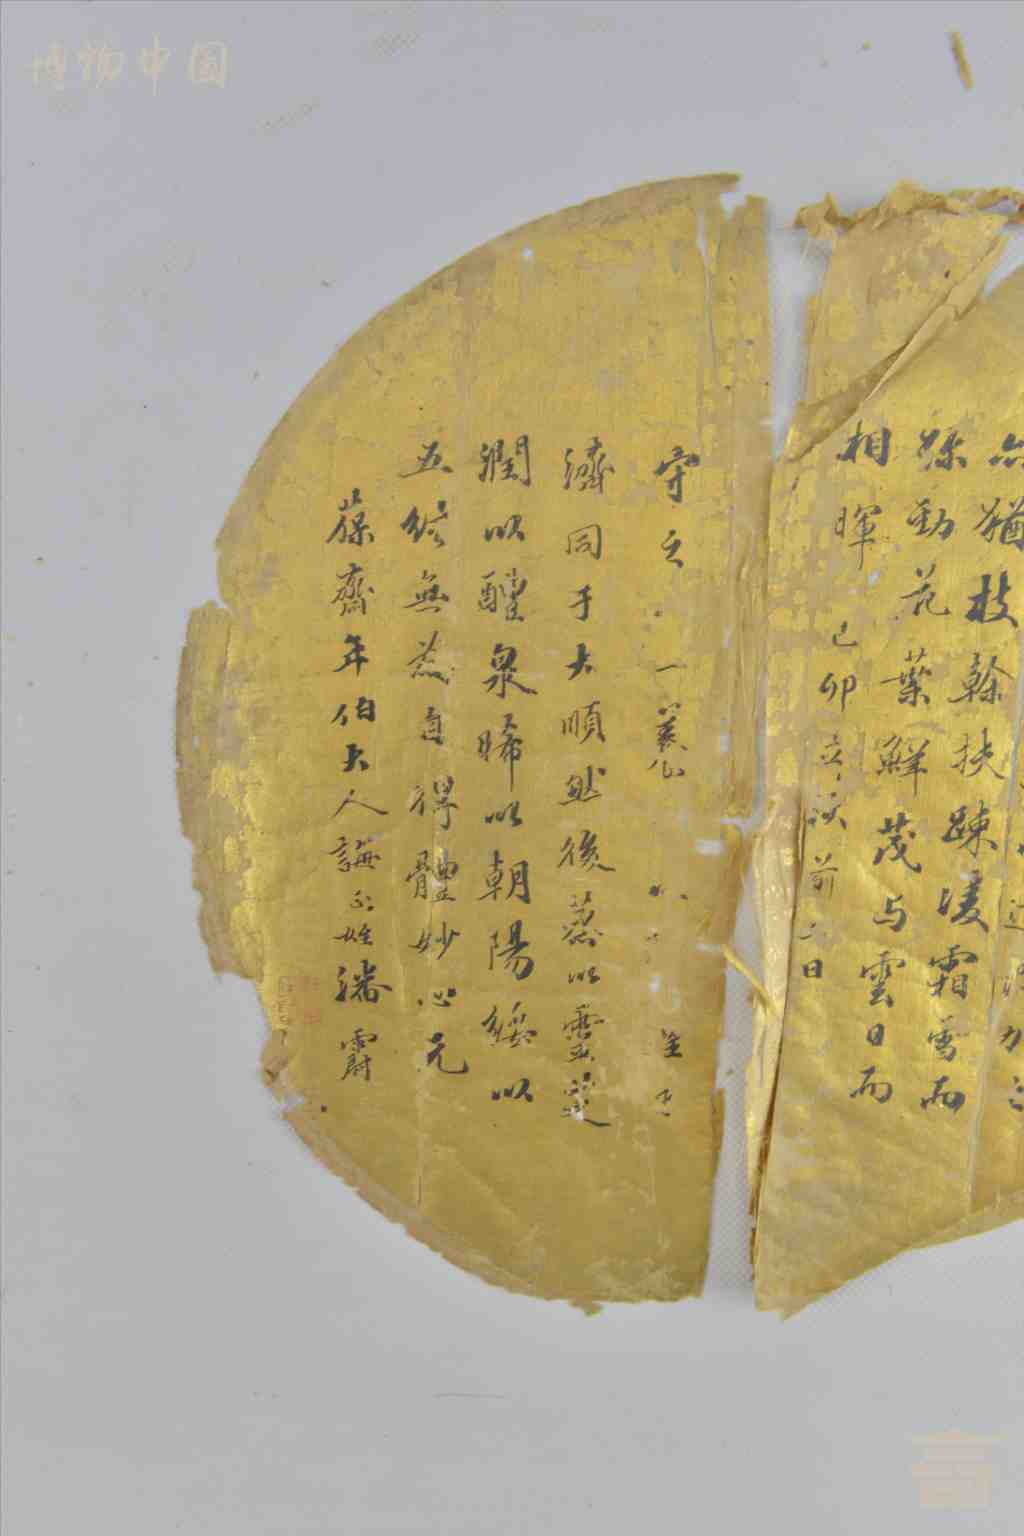 猶
枝幹扶疎凌霜雪而
勁花葉鮮茂与雲日而
相暉
己卯立 前 日
守之 一
濟同于大順然後蒸以靈芝
潤以醴泉晞以朝陽綏以
五絃無為自得體妙心元
葆齋年伯大人誨正姓潘霨
博物中国